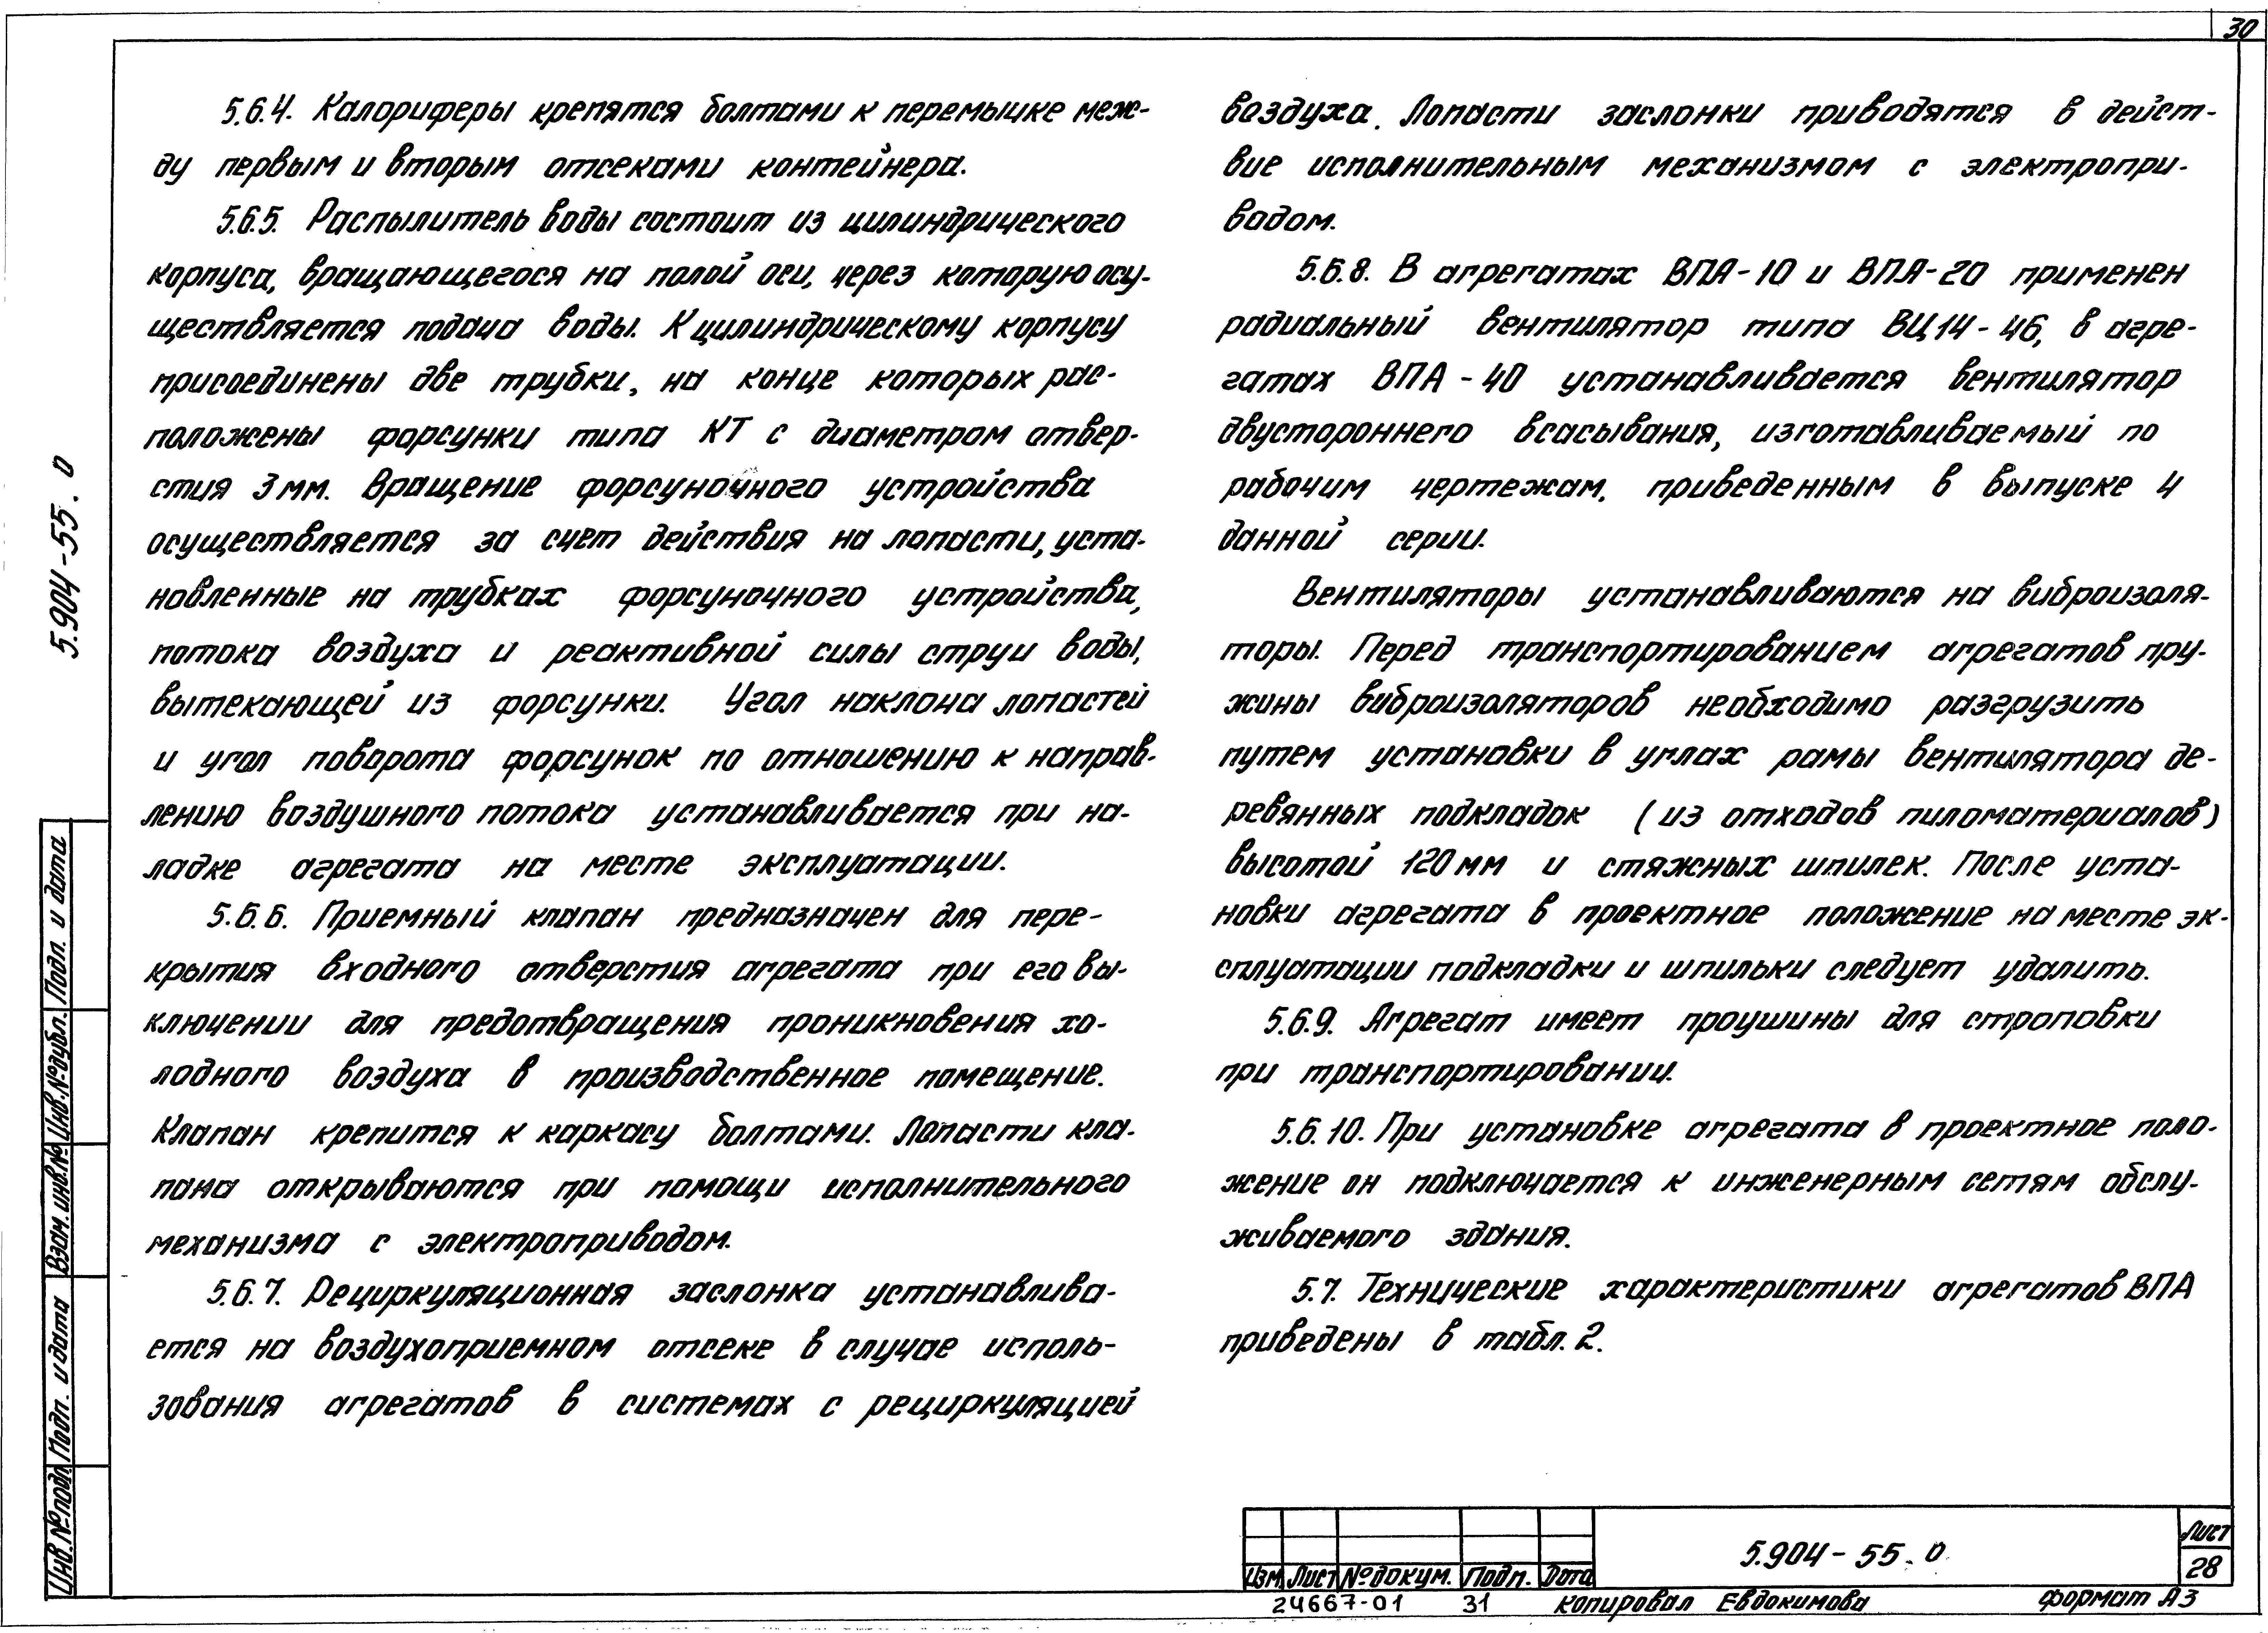 30
5.6.4. Калориферы крепятся болтами к перемычке меж-
ду первым и вторым отсеками контейнера.
5.6.5. Распылитель воды состоит из цилиндрического
корпуса, вращающегося на полой оси, через которую осу-
ществляется подача воды. К цилиндрическому корпусу
присоединены две трубки, на конце которых рас-
положены форсунки типа КТ с диаметром отвер-
стия 3 мм. Вращение форсуночного устройства
осуществляется за счет действия на лопасти, уста-
новленные на трубках форсуночного устройства,
потока воздуха и реактивной силы струи воды,
вытекающей из форсунки. Угол наклона лопастей
и угол поворота форсунок по отношению к направ-
лению воздушного потока устанавливается при на-
ладке агрегата на месте эксплуатации.
5.6.6. Приемный клапан предназначен для пере-
крытия входного отверстия агрегата при его вы-
ключении для предотвращения проникновения хо-
лодного воздуха в производственное помещение.
Клапан крепится к каркасу болтами. Лопасти кла-
пана открываются при помощи исполнительного
механизма с электроприводом.
5.6.7. Рециркуляционная заслонка устанавлива-
ется на воздухоприемном отсеке в случае исполь-
зования агрегатов в системах с рециркуляцией
воздуха. Лопасти заслонки приводятся в дейст-
вие исполнительным механизмом с электропри-
водом.
5.6.8. В агрегатах ВПА-10 и ВПА-20 применен
радиальный вентилятор типа ВЦ14-46, в агре-
гатах ВПА-40 устанавливается вентилятор
двустороннего всасывания, изготавливаемый по
рабочим чертежам, приведенным в выпуске 4
данной серии.
Вентиляторы устанавливаются на виброизоля-
торы. Перед транспортированием агрегатов пру-
жины виброизоляторов необходимо разгрузить
путем установки в углах рамы вентилятора де-
ревянных подкладок (из отходов пиломатериалов)
высотой 120 мм и стяжных шпилек. После уста-
новки агрегата в проектное положение на месте эк-
сплуатации подкладки и шпильки следует удалить.
5.6.9. Агрегат имеет проушины для строповки
при транспортировании.
5.6.10. При установке агрегата в проектное поло-
жение он подключается к инженерным сетям обслу-
живаемого здания.
5.7. Технические характеристики агрегатов ВПА
приведены в табл. 2.
5.904-55.0
Инв.№подл. Подп. и дата Взам.инв.№ Инв.№дубл. Подп. и дата
Изм Лист №докум. Подп. Дата
5.904-55.0
Лист
28
24667-01 31 Копировал Евдокимова Формат А3